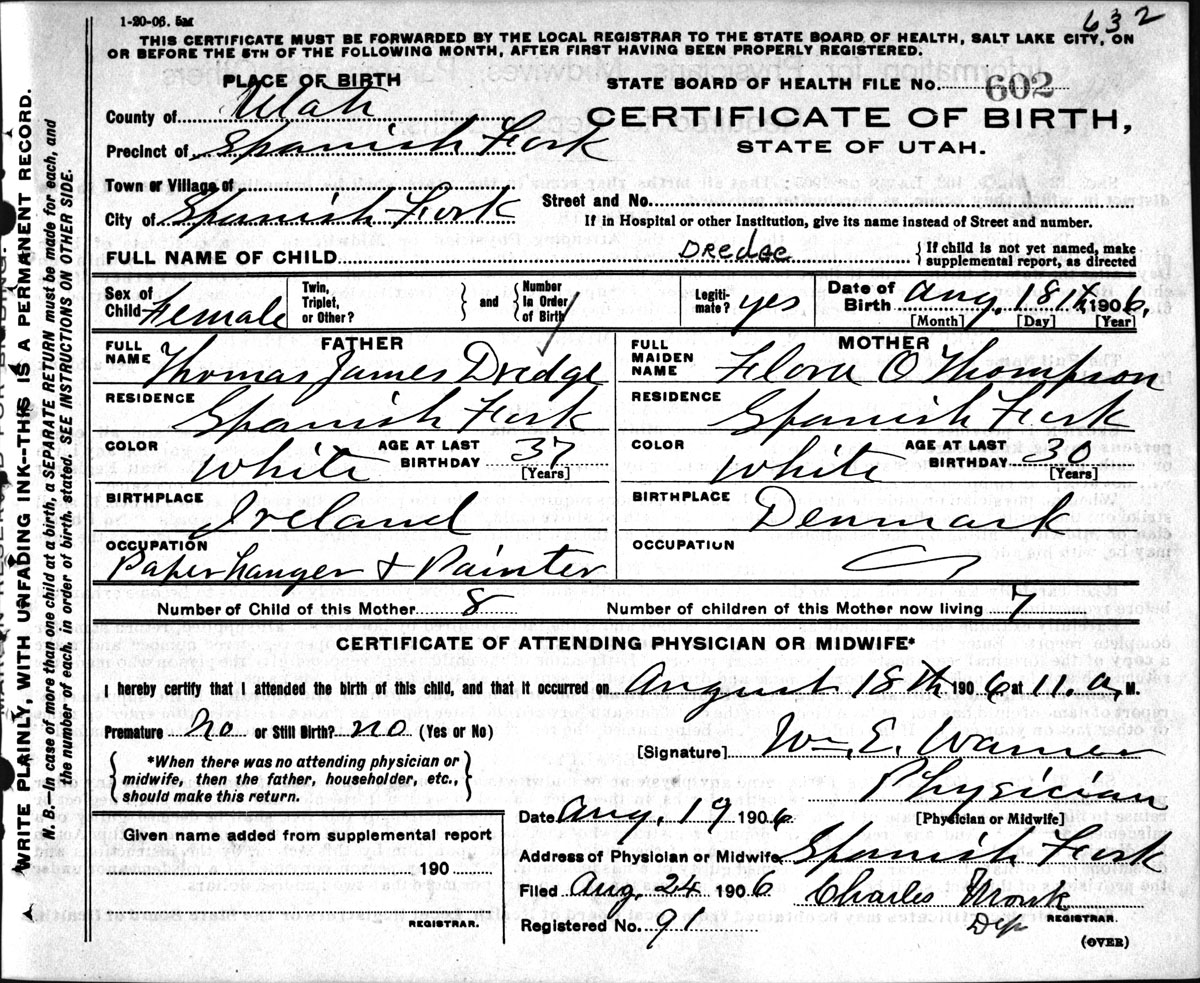 1-20-06. 5M
632
THIS CERTIFICATE MUST BE FORWARDED BY THE LOCAL REGISTRAR TO THE STATE BOARD OF HEALTH, SALT LAKE CITY, ON
OR BEFORE THE 5TH OF THE FOLLOWING MONTH, AFTER FIRST HAVING BEEN PROPERLY REGISTERED.
PLACE OF BIRTH
STATE BOARD OF HEALTH FILE NO. 602
County of Utah
CERTIFICATE OF BIRTH,
Precinct of Spanish Fork
STATE OF UTAH.
Town or Village of
Street and No.
City of Spanish Fork
If in Hospital or other Institution, give its name instead of Street and number.
FULL NAME OF CHILD Dredge { If child is not yet named, make
supplemental report, as directed
Sex of Child Female
Twin, Triplet, or Other? } and { Number In Order of Birth /
Legiti-mate? yes
Date of Birth Aug. 18th 1906,
[Month] [Day] [Year]
FATHER
MOTHER
FULL NAME Thomas James Dredge
FULL MAIDEN NAME Flora O Thompson
RESIDENCE Spanish Fork
RESIDENCE Spanish Fork
COLOR White AGE AT LAST BIRTHDAY 37 [Years]
COLOR White AGE AT LAST BIRTHDAY 30 [Years]
BIRTHPLACE Ireland
BIRTHPLACE Denmark
OCCUPATION Paper hanger + Painter
OCCUPATION
Number of Child of this Mother 8 Number of children of this Mother now living 7
CERTIFICATE OF ATTENDING PHYSICIAN OR MIDWIFE*
I hereby certify that I attended the birth of this child, and that it occurred on August 18th 1906 at 11. a. M.
Premature No or Still Birth? no (Yes or No)
[Signature] Wm E. Warner
{ *When there was no attending physician or
midwife, then the father, householder, etc.,
should make this return. }
Physician
[Physician or Midwife]
Date Aug. 19 1906
Given name added from supplemental report
190
REGISTRAR.
Address of Physician or Midwife Spanish Fork
Filed Aug. 24 1906 Charles Monk
REGISTRAR.
Dep
Registered No. 91
(OVER)
WRITE PLAINLY, WITH UNFADING INK--THIS IS A PERMANENT RECORD.
N. B.—In case of more than one child at a birth, a SEPARATE RETURN must be made for each, and
the number of each, in order of birth, stated. SEE INSTRUCTIONS ON OTHER SIDE.